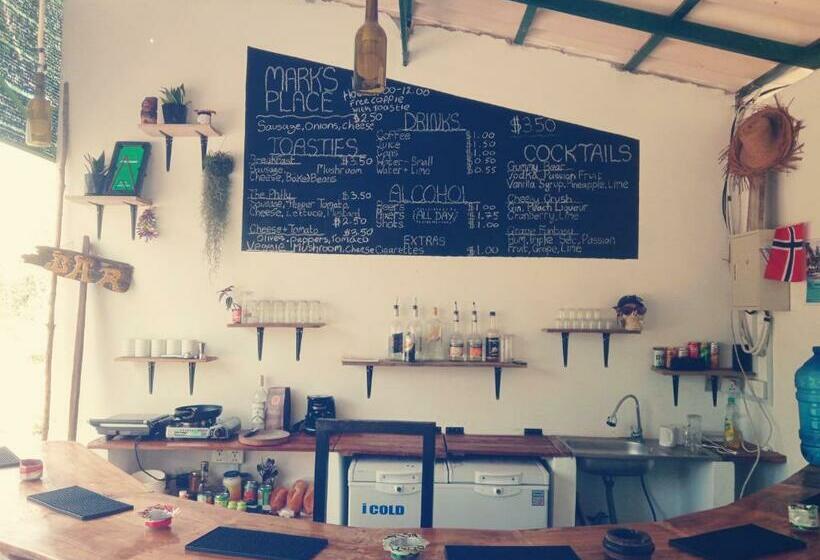 MARK'S
PLACE
-12.00
Free Coffie
with toastie
$2.50
Sausage, Onions, Cheese
TOASTIES
Breakfast $3.50
Sausage Mushroom
Cheese, Baked Beans
The Philly $3.50
Sausage, Pepper, Tomato
Cheese, Lettuce, Mustard
$2.50
Cheese + Tomato $3.50
Olives, Peppers, Tomaco
Veggie Mushroom, Cheese
DRINKS
Coffee $1.00
Juice $1.50
Cans $1.00
Water - Small $0.50
Water + Lime $0.55
ALCOHOL
Beers $1.00
Mixers (ALL DAY) $1.75
Shots $1.00
EXTRAS
Cigarettes $1.00
$3.50
COCKTAILS
Gummy Bear
Vodka, Passion Fruit
Vanilla Syrup, Pineapple, Lime
Cheeky Crush
Gin, Peach Liqueur
Cranberry, Lime
Grape Fantasy
Rum, Triple Sec, Passion
Fruit, Grape, Lime
BAR
iCOLD